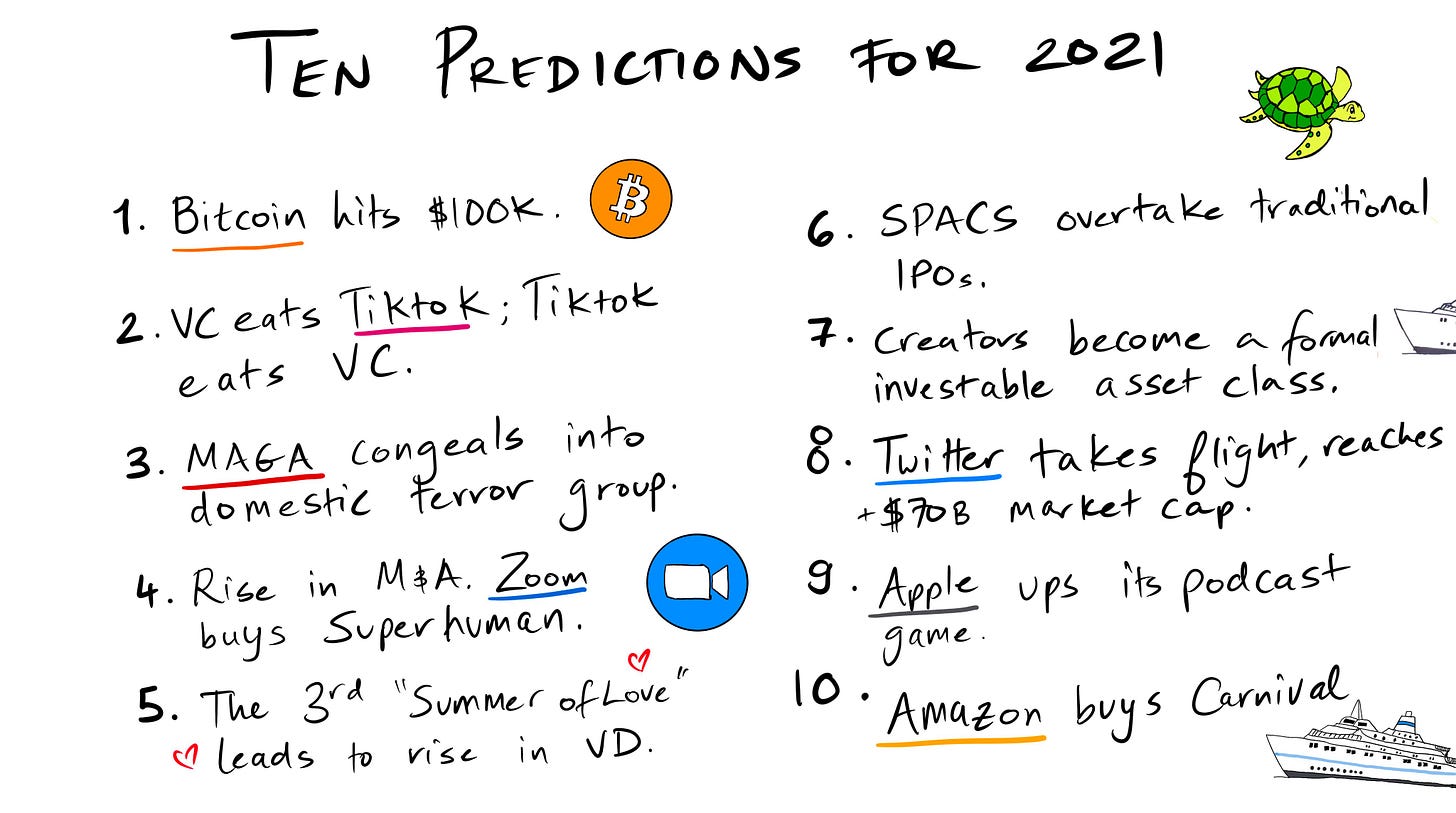 TEN PREDICTIONS FOR 2021
1. Bitcoin hits $100K.
2. VC eats Tiktok; Tiktok
eats VC.
3. MAGA congeals into
domestic terror group.
4. Rise in M&A. Zoom
buys Superhuman.
5. The 3rd "Summer of Love"
leads to rise in VD.
6. SPACS overtake traditional
IPOs.
7. Creators become a formal
investable asset class.
8. Twitter takes flight, reaches
+$70B market cap.
9. Apple ups its podcast
game.
10. Amazon buys Carnival